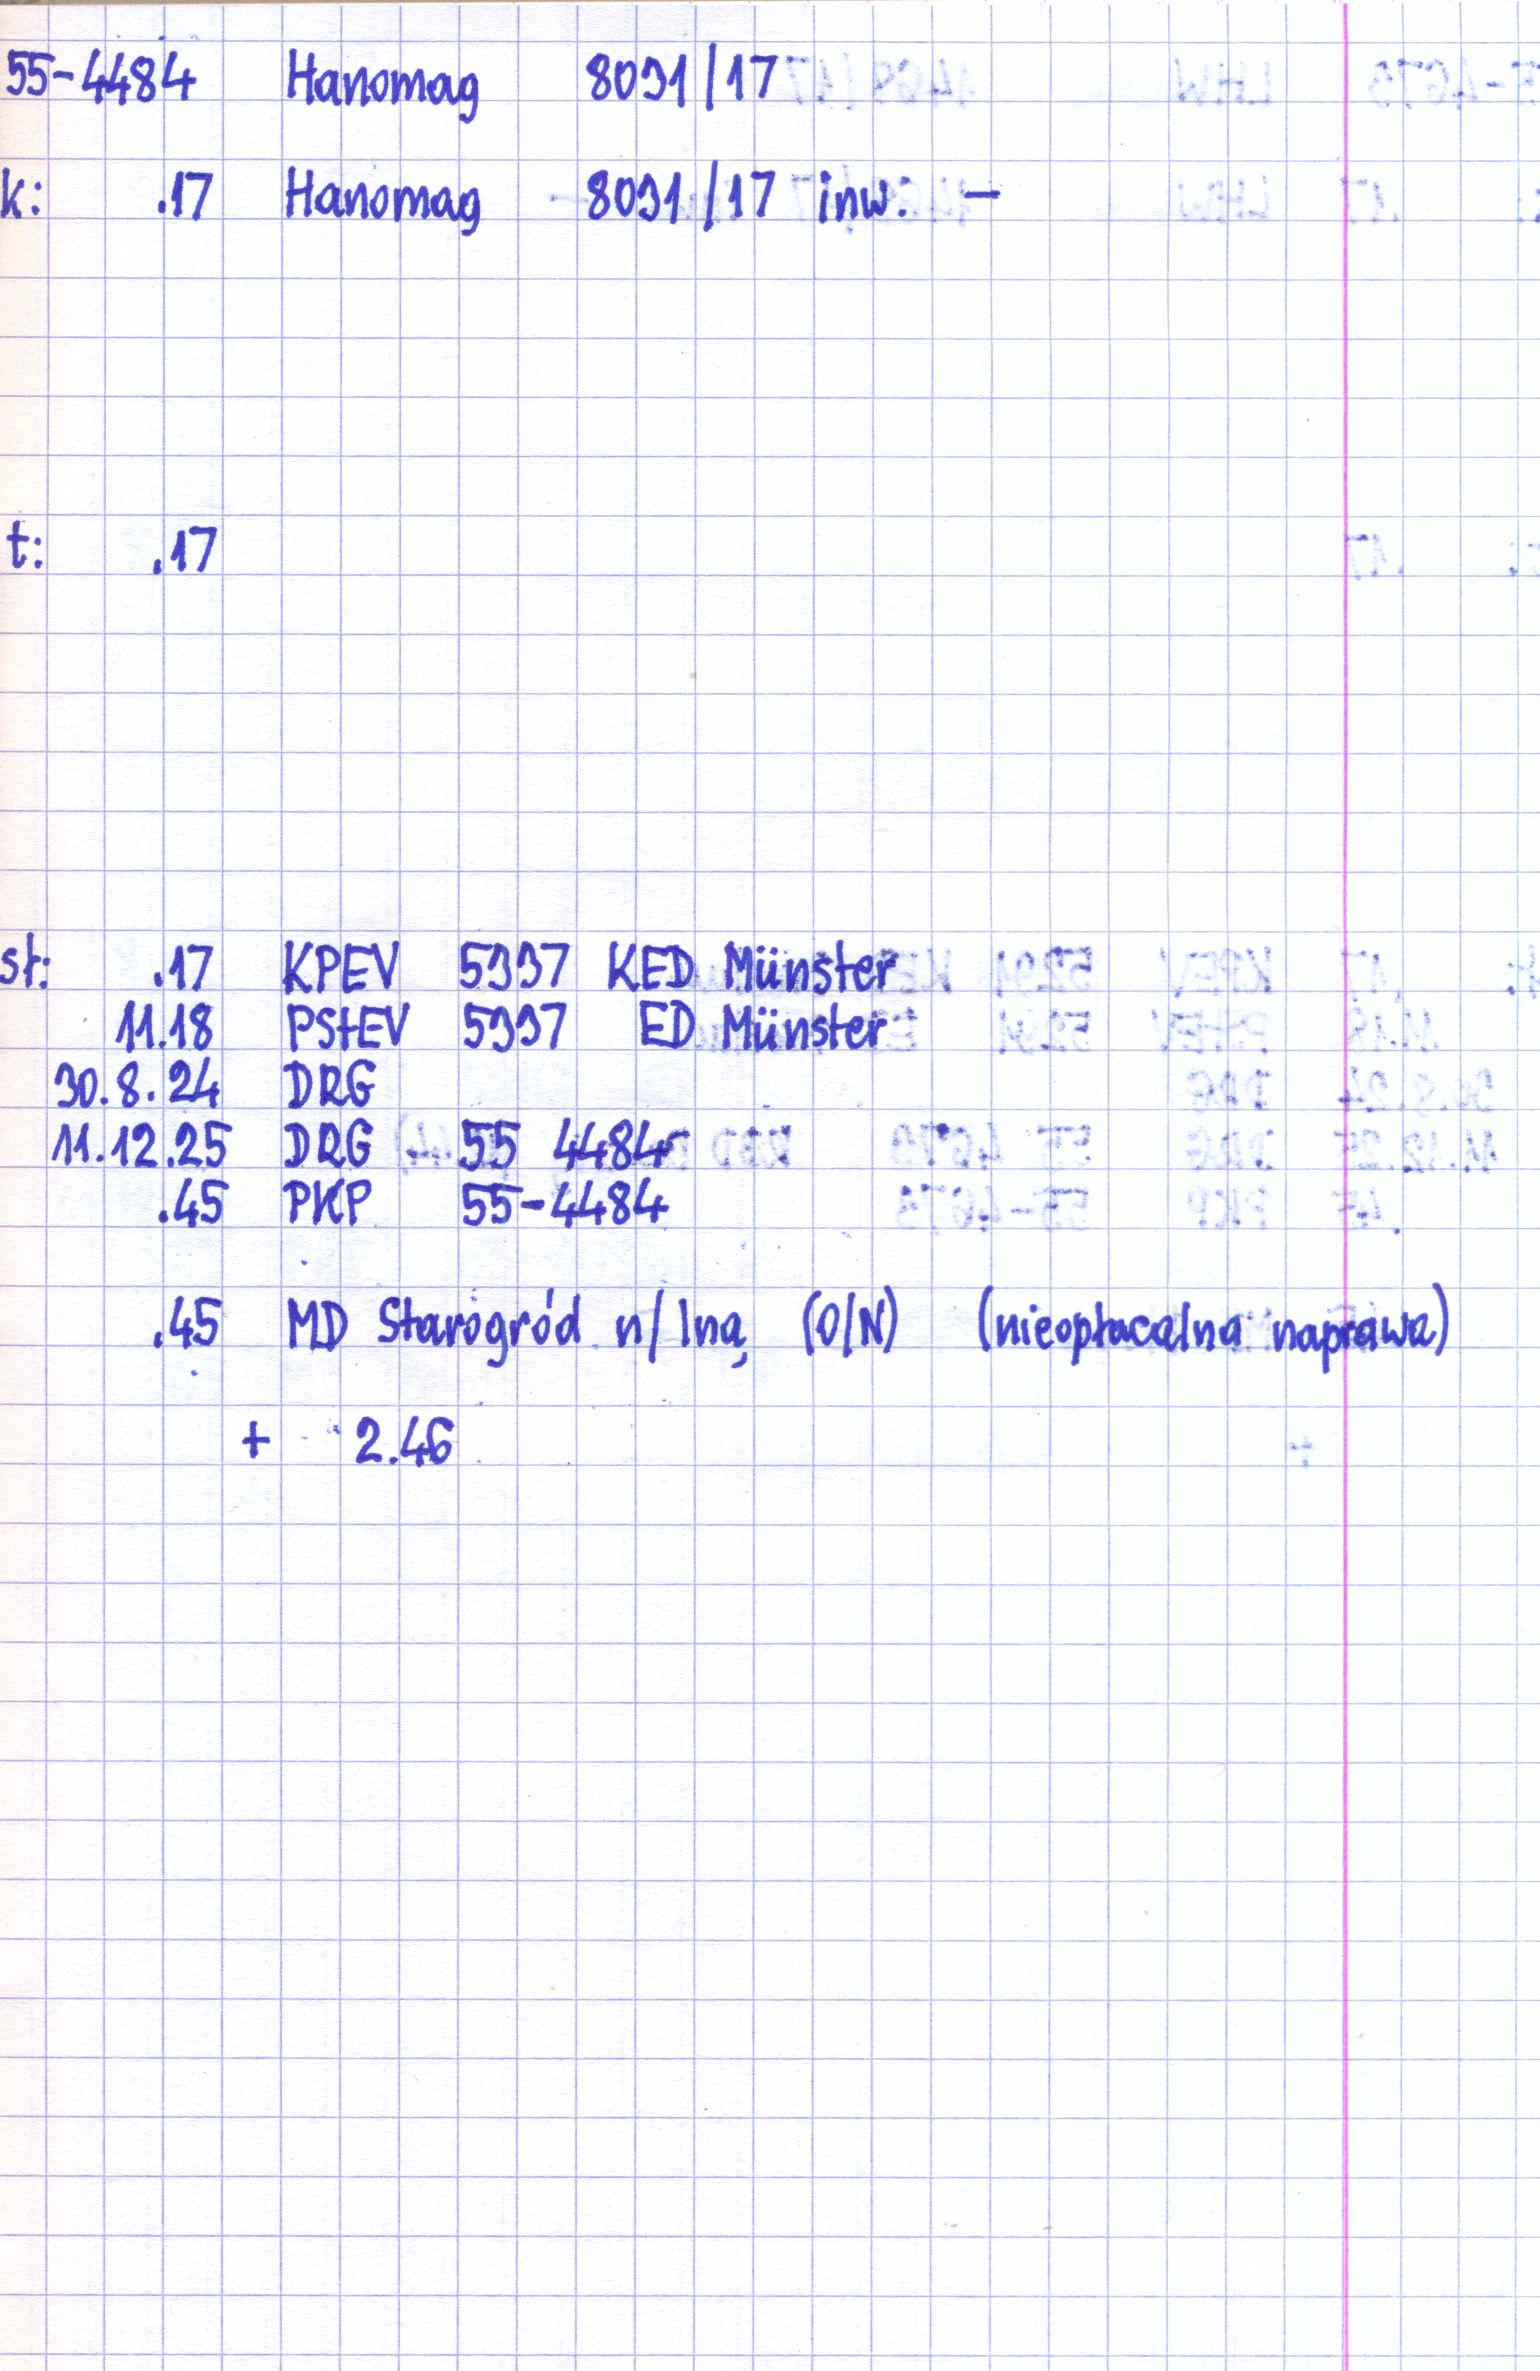 55-4484 Hanomag 8091/17
k: .17 Hanomag 8091/17 inw. –
t: .17
st: .17 KPEV 5997 KED Münster
11.18 PStEV 5997 ED Münster
30.8.24 DRG
11.12.25 DRG 55 4484
.45 PKP 55-4484
.45 MD Starogród n/Iną (O/N) (nieopłacalna naprawa)
+ 2.46